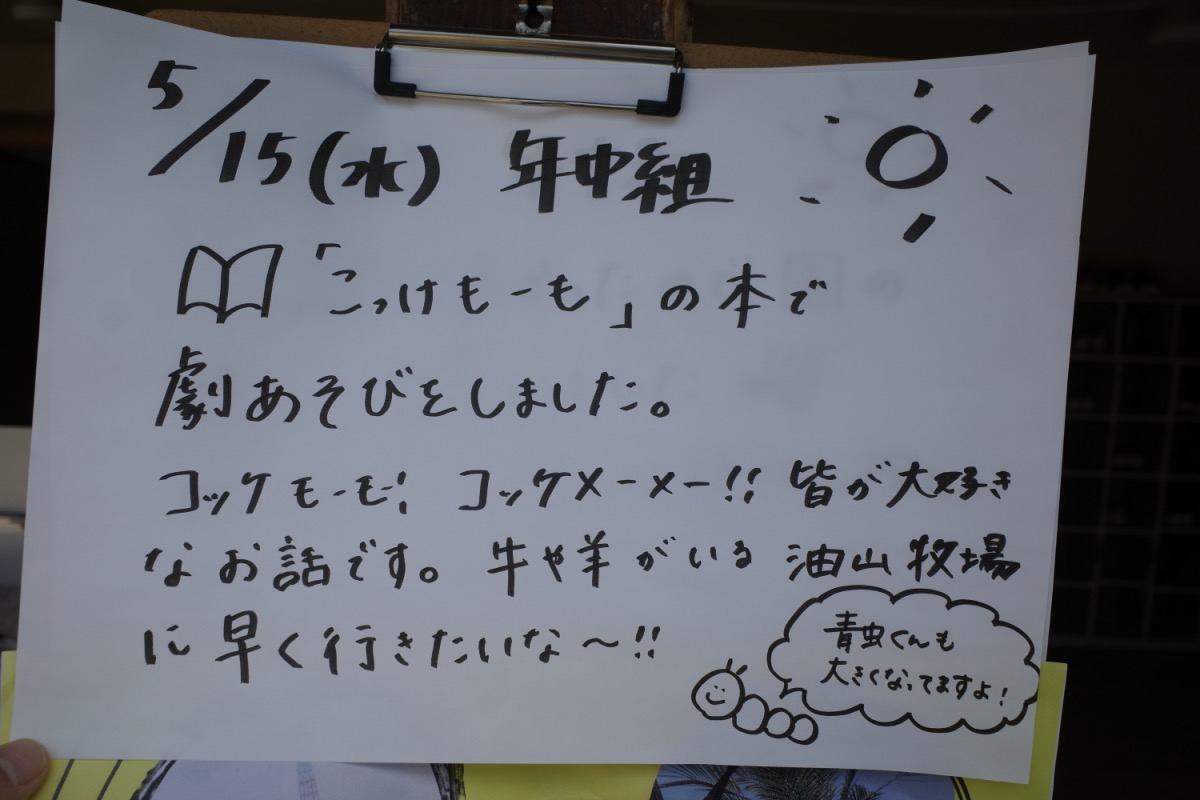 5/15(水) 年中組
「こっけもーも」の本で
劇あそびをしました。
コッケモーモー! コッケメーメー!! 皆が大好き
なお話です。牛や羊がいる 油山牧場
に早く行きたいな〜!!
青虫くんも
大きくなってますよ!